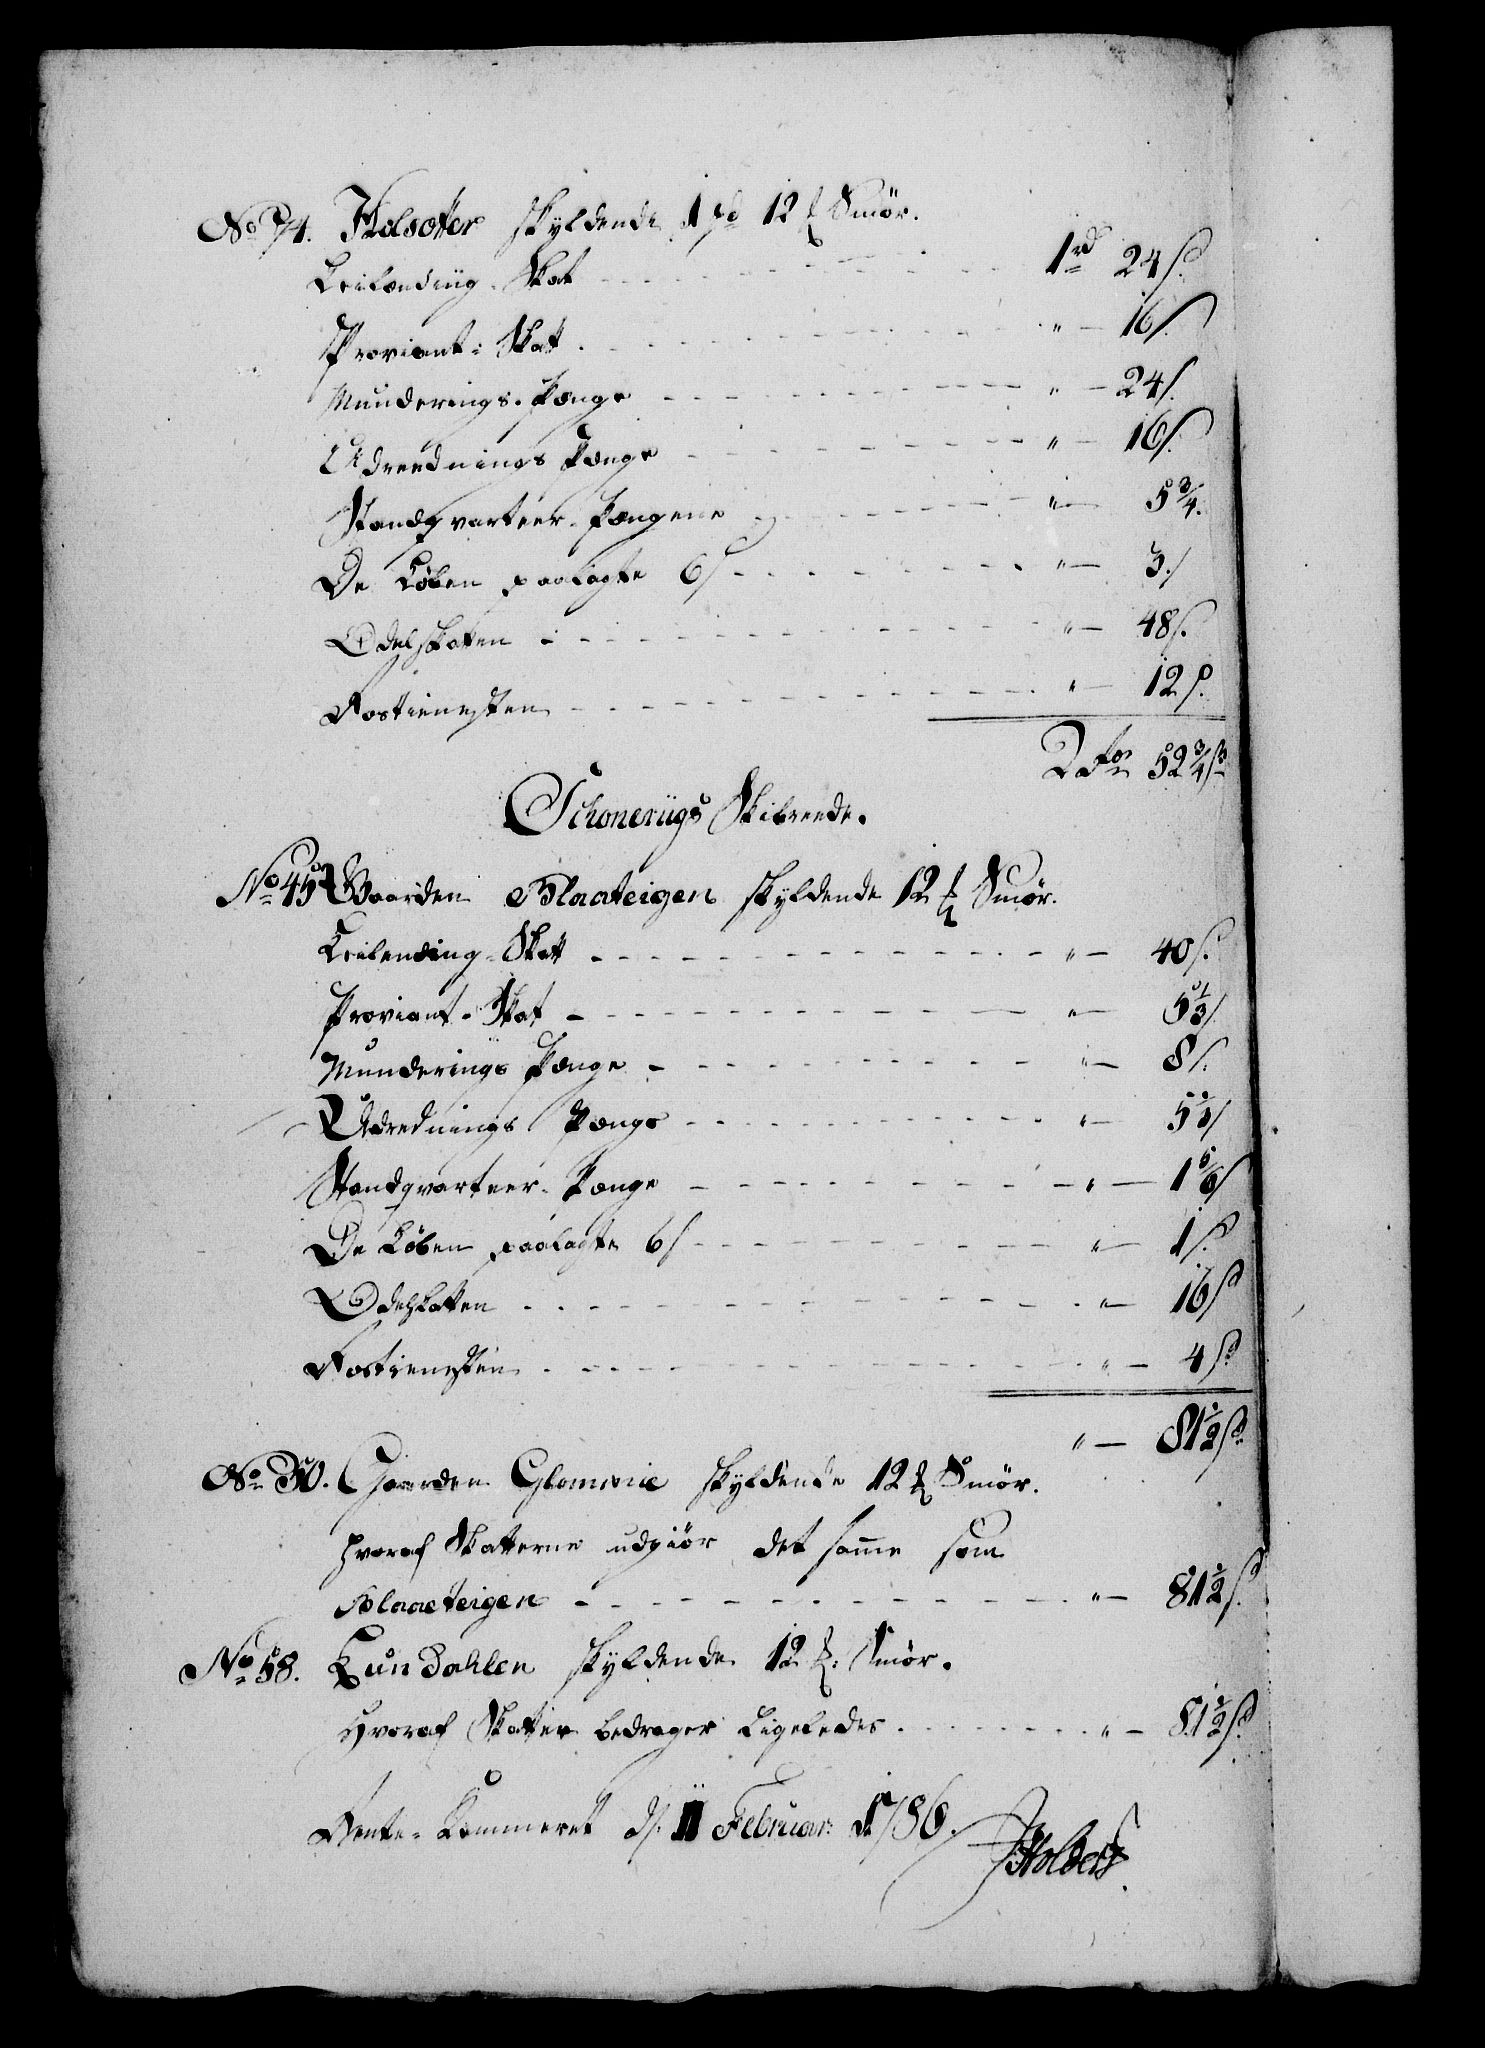 No 74. Holsæter skyldende 1 pd 12 ℔ Smør.
Leilænding Skat - - - 1 rd 24 s.
Proviant: Skat . - - - " — 16 s.
Munderings. Penge - - - " — 24 s.
Udreednings Penge - - - " — 16 s.
Standqvarteer. Pengene - - - " — 5 3/4.
De Løben paalagte 6 s - - - " — 3. s
Odelskatten - - - " — 48 s.
Rostienesten - - - " — 12 s.
2 52 3/4 s
Schonerügs Skibreede.
No 45 Gaarden Blaateigen skyldende 12 ℔ Smør.
Leilending - Skatt - - - " — 40 s.
Proviant - Skat - - - " — 5 1/3 s
Munderings Penge - - - " — 8 s.
Udrednings Penge - - - " — 5 1/3 s
Standqvarteer. Penge - - - " — 1 5/6 s
De Løben paalagte 6 s - - - " — 1 s.
Odelskatten - - - " — 16 s
Rostienesten - - - " — 4 s
" — 81 1/2 s.
No 50. Gaarden Glomvie skyldende 12 ℔ Smør.
hvoraf Skatterne udgiør det samme som
Blaaeteigen - - - " — 81 1/2 s.
No 58. Lundahlen skyldende 12 ℔: Smør.
Hvoraf Skatter bedrager Ligeledes . - - - " — 81 1/2 s.
Rente-Kammeret d. 11 Februar: 1786.